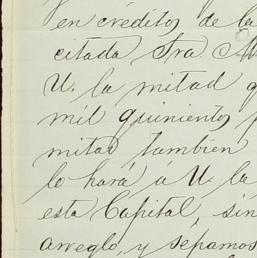 en créditos de la
citada Sra. M
U. la mitad q
mil quinientos p
mitad, tambien
lo hará á U. la
esta Capital, sin
arreglo, y sépamos